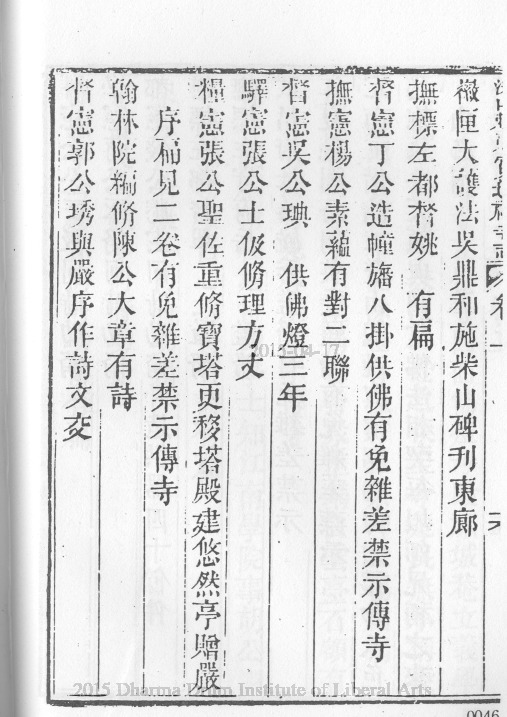 徽匣大護法吳鼎和施柴山碑刊東廊
撫標左都督姚 有扁
督憲丁公造幢旛八掛供佛有免雜差禁示傳寺
撫憲楊公素蘊有對二聯
督憲吳公琠 供佛燈三年
驛憲張公士伋脩理方丈
糧憲張公聖佐重脩寶塔更移塔殿建悠然亭贈嚴
序扁見二卷有免雜差禁示傳寺
翰林院編脩陳公大章有詩
督憲郭公琇與嚴序作詩文交
2015-04-17
2015 Dharma Drum Institute of Liberal Arts
0046